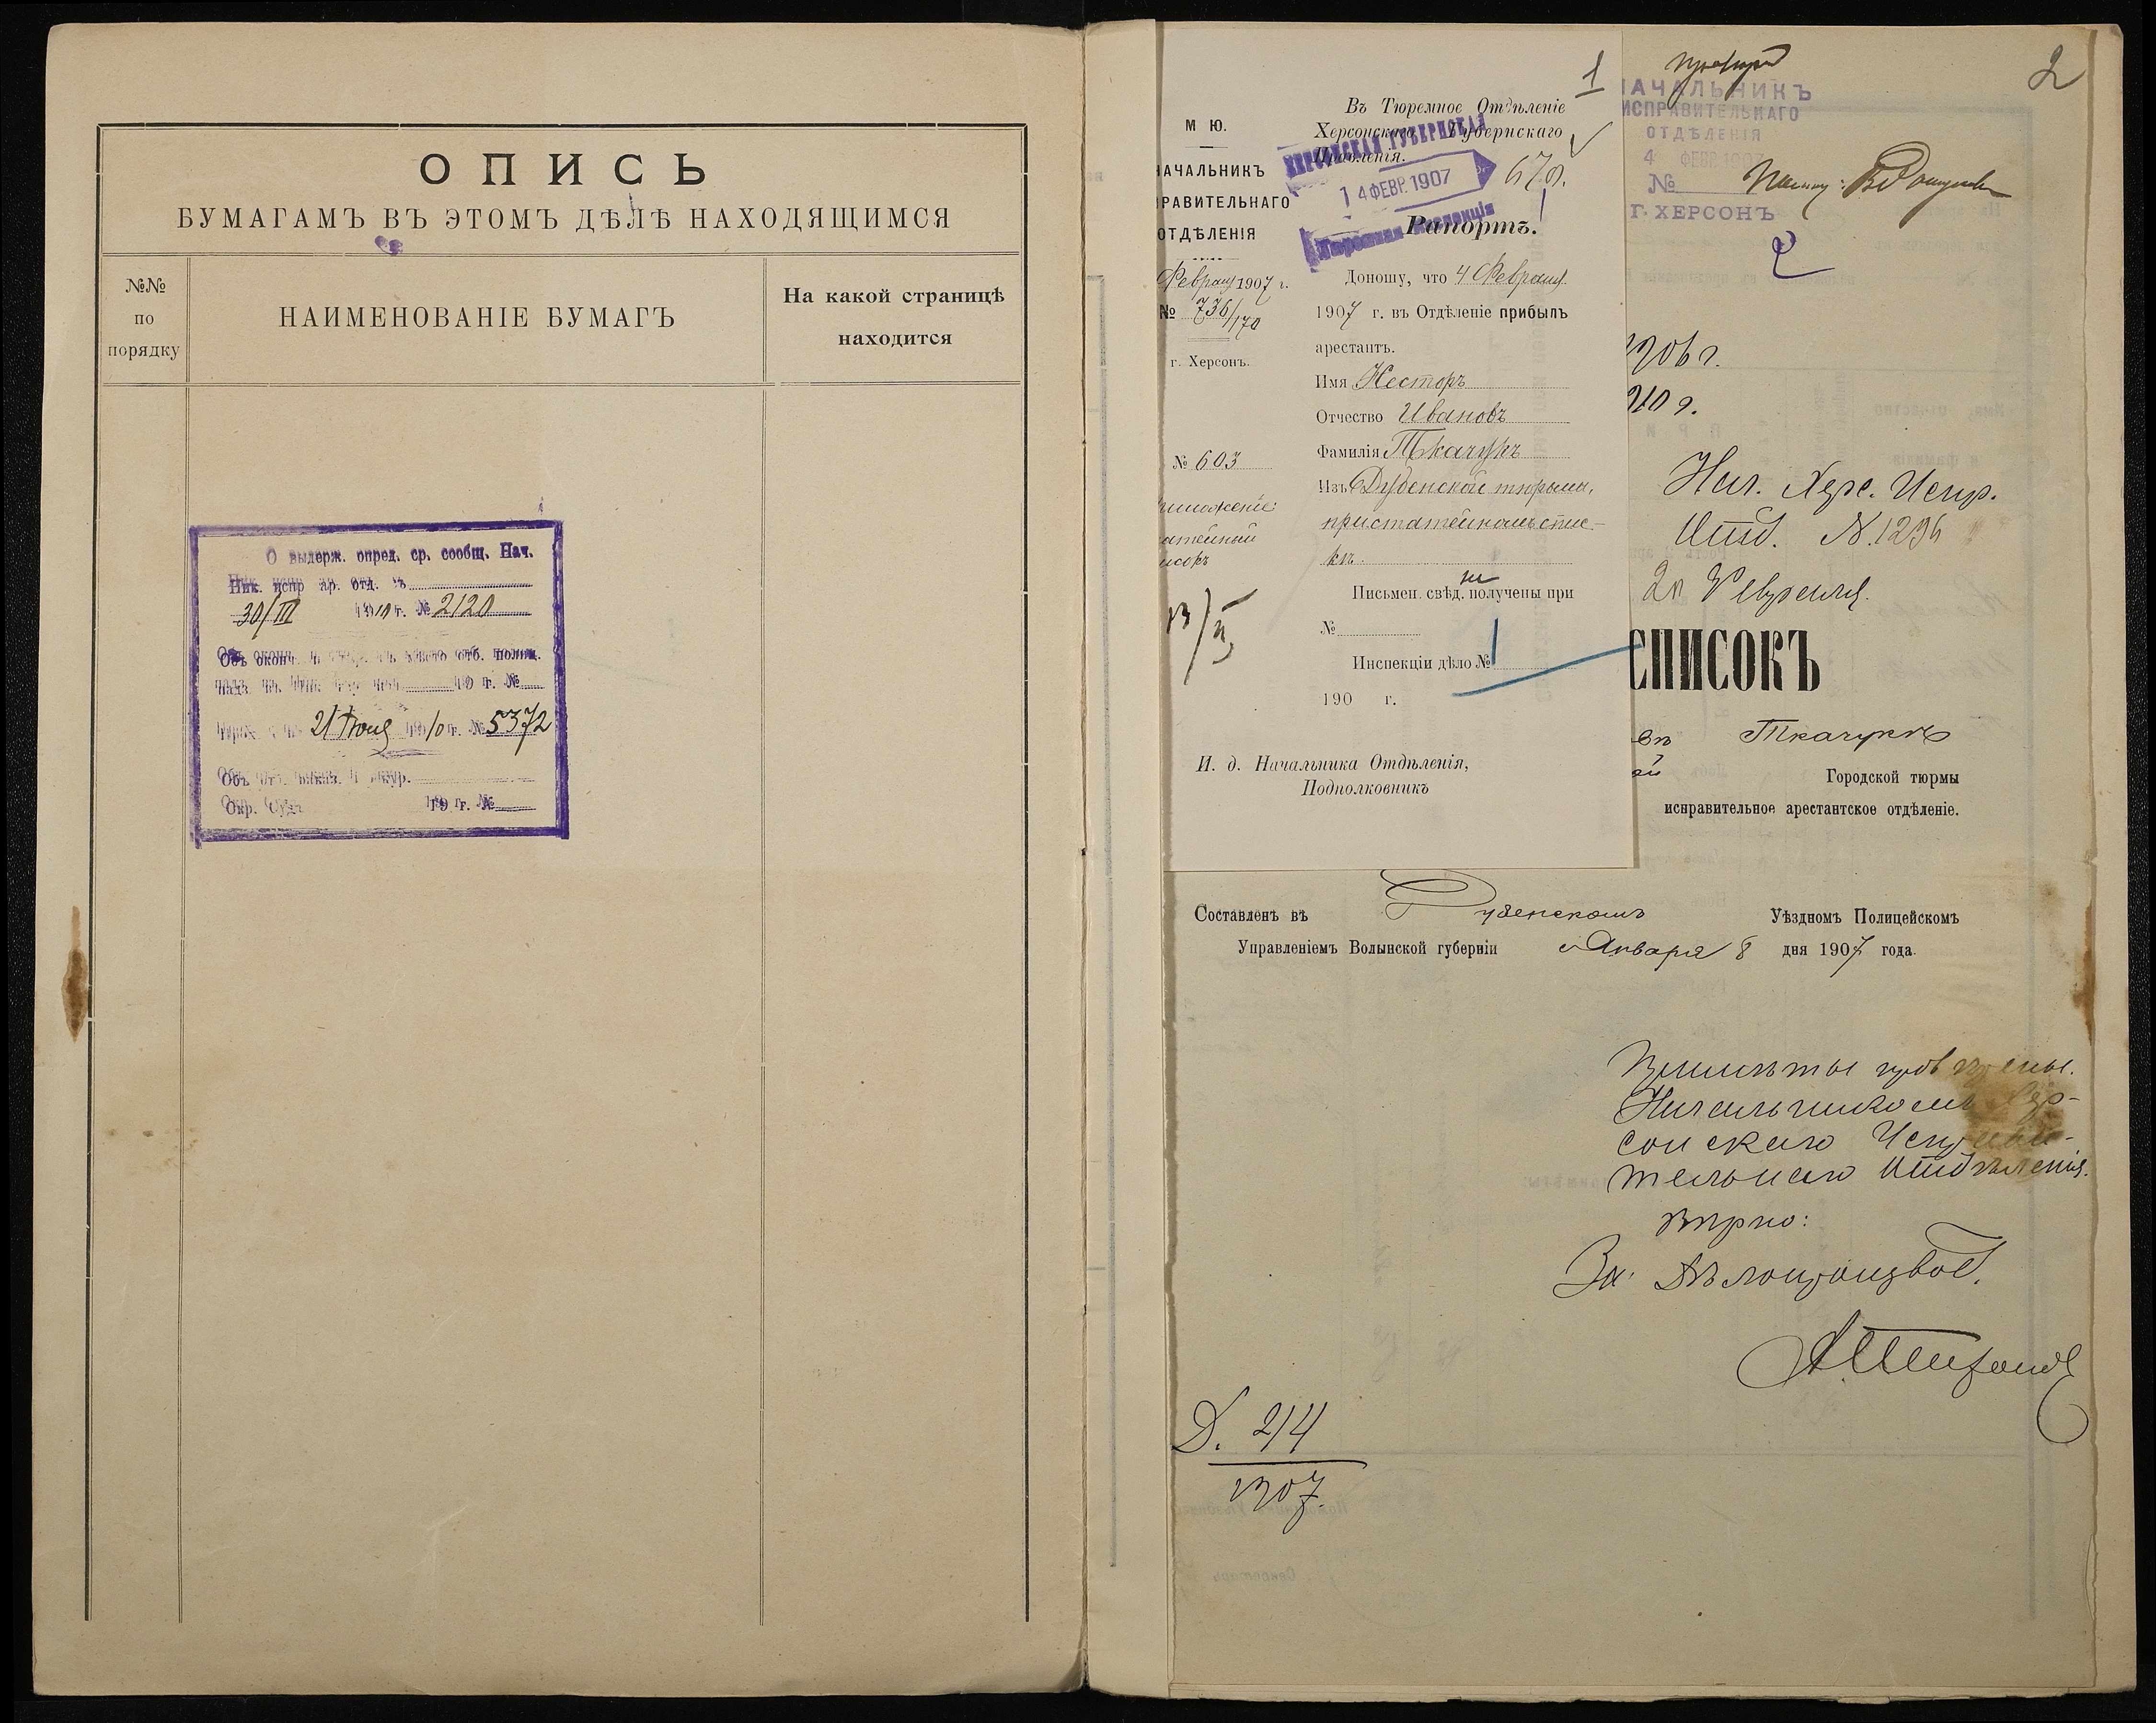 ОПИСЬ
БУМАГАМЪ ВЪ ЭТОМЪ ДѢЛѢ НАХОДЯЩИМСЯ
№№
по
порядку
НАИМЕНОВАНІЕ БУМАГЪ
На какой страницѣ
находится
О выдерж. опред. ср. сообщ. Нач.
Ник. испр ар. отд. съ
30/III 1910 г. № 2120
Объ оконч. отб. полиц.
надз. 19 г. №
21 1910 г. № 5372
Объ
Окр. Суд. 19 г. №
1
М Ю.
НАЧАЛЬНИКЪ
РАВИТЕЛЬНАГО
ОТДѢЛЕНІЯ
1907 г.
№ 736/170
г. Херсонъ.
№ 603
Въ Тюремное Отдѣленіе
Херсонскаго Губернскаго
Правленія.
ХЕРСОНСКАЯ ГУБЕРНСКАЯ
14 ФЕВР. 1907
Тюремная Инспекція
Рапортъ.
Доношу, что 4 Февраля
1907 г. въ Отдѣленіе прибылъ
арестантъ.
Имя Несторъ
Отчество Ивановъ
Фамилія Ткачукъ
Изъ Дубенской тюрьмы,
при статейномъ спис-
кѣ.
Письмен. свѣд. не получены при
№
Инспекціи дѣло №
190 г.
И. д. Начальника Отдѣленія,
Подполковникъ
2
НАЧАЛЬНИКЪ
ИСПРАВИТЕЛЬНАГО
ОТДѢЛЕНІЯ
4 ФЕВР. 1907
№
Г. ХЕРСОНЪ
2
1906 г.
910 г.
Нач. Херс. Испр.
Отд. № 1296
Февраля
СПИСОКЪ
Ткачукъ
Городской тюрмы
исправительное арестантское отдѣленіе.
Составленъ въ Дубенскомъ Уѣздномъ Полицейскомъ
Управленіемъ Волынской губерніи Января 8 дня 1907 года.
Примѣты провѣрены.
Начальникомъ Хер-
сонскаго Исправи-
тельнаго Отдѣленія.
Вѣрно:
За Дѣлопроизвод.
Д. 214
1907.